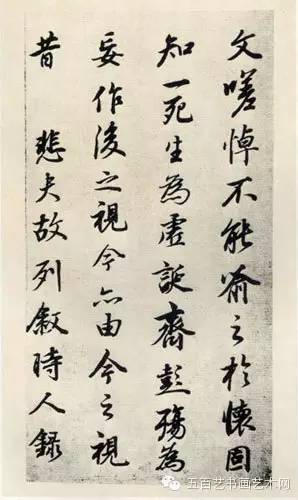 文嗟悼不能喻之於懷固
知一死生為虛誕齊彭殤為
妄作後之視今亦由今之視
昔 悲夫故列叙時人錄
五百艺书画艺术网